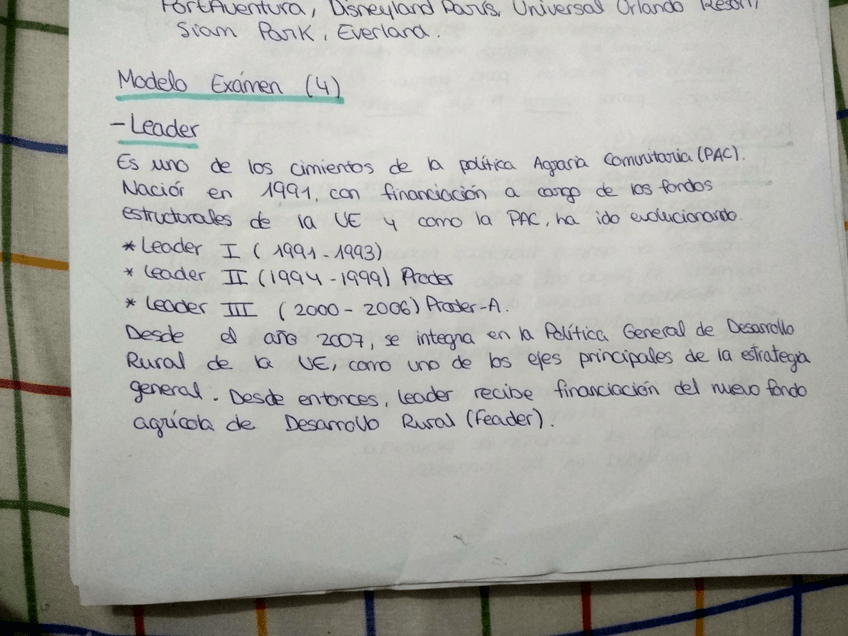 PortAventura, Disneyland París, Universal Orlando Resort,
Siam Park, Everland.
Modelo Exámen (4)
- Leader
Es uno de los cimientos de la política Agraria Comunitaria (PAC).
Nació en 1991, con financiación a cargo de los fondos
estructurales de la UE y como la PAC, ha ido evolucionando.
* Leader I (1991-1993)
* Leader II (1994-1999) Proder
* Leader III (2000-2006) Proder-A.
Desde el año 2007, se integra en la Política General de Desarrollo
Rural de la UE, como uno de los ejes principales de la estrategia
general. Desde entonces, leader recibe financiación del nuevo fondo
agrícola de Desarrollo Rural (Feader).